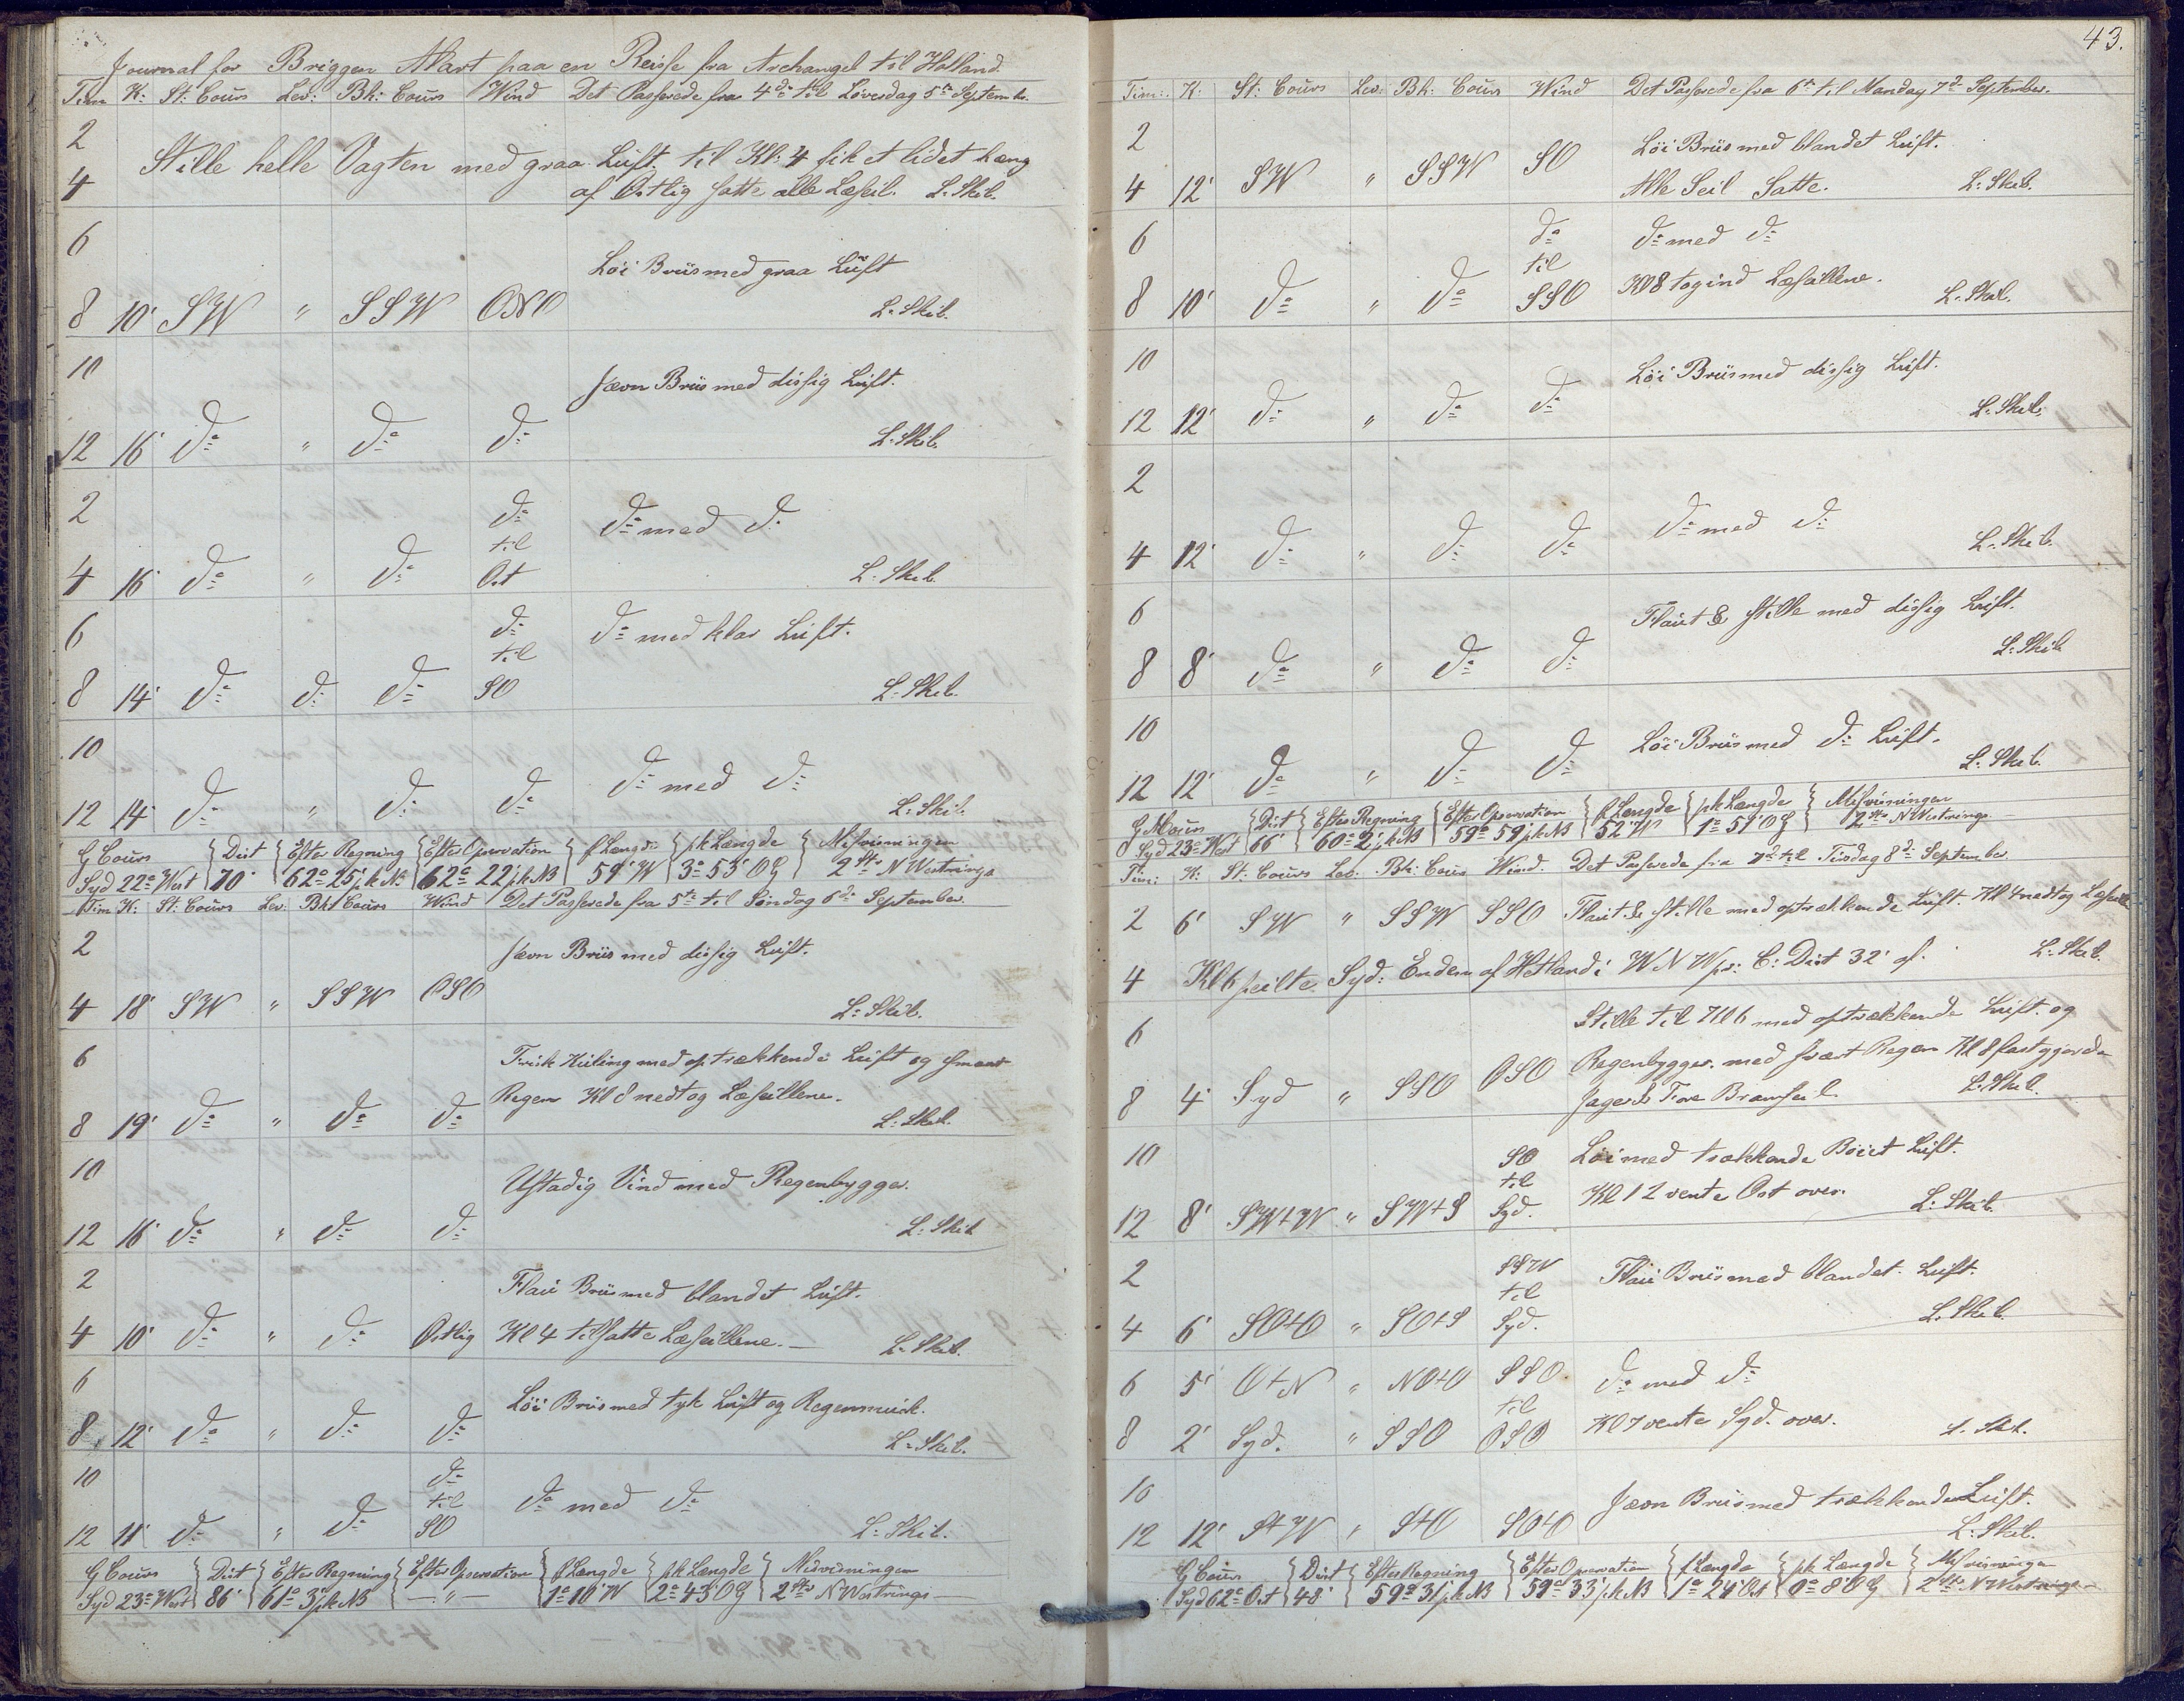 Journal for Briggen Mart paa en Reise fra Archangel til Holland
Tim K: St: Cours Lev: Bh: Cours Wind Det Passerede fra 4de til Löverdag 5te Septembr.
2
Stille helle Vagten med graa Luft til Kl: 4 fik et lidet
4 af Ostlig satte alle Læseil. L. Skib.
6
Löi Briis med graa Luft
8 10' SW " SSW ONO L. Skib.
10
Jævn Briis med dissig Luft.
12 16' do " do do L. Skib.
2 do do med do
til
4 16' do " do Ost L. Skib.
6 do do med klar Luft.
til
8 14' do do do SO L. Skib.
10
do med do
12 14' do " do do L. Skib.
G Cours Dist Efter Regning Efter Opservation f Længde pk Længde Misvisningen
Syd 22° West 70' 62° 25' pk NB 62° 22' pk NB 59' W 3° 53' OG 2 Str N Westrings
Tim K: St: Cours Lev: Bh: Cours Wind Det Passerede fra 5te til Söndag 6de September.
2
Jævn Briis med dissig Luft.
4 18' SW " SSW OSO L. Skib.
6 Frisk Kuling med optrækkende Luft og smaat
Regen Kl 8 nedtog Læseillene.
8 19' do " do do L. Skib.
10
Ustadig Vind med Regenbygger.
12 16' do " do do L. Skib
2
Flaü Briis med blandet Luft.
4 10' do " do Ostlig Kl 4 tilsatte Læseillene. L. Skib.
6
Löi Briis med tyk Luft og Regenmusk.
8 12' do " do do L. Skib.
10 do
til do med do
12 11' do " do SO L. Skib.
G Cours Dist Efter Regning Efter Opservation f Længde pk Længde Misvisningen
Syd 23° West 86' 61° 3' pk NB — " — 1° 10' W 2° 43' OG 2 Str N Westrings
43.
Tim: K: St: Cours Lev: Bh: Cours Wind Det Passerede fra 6te til Mandag 7de September.
2
Löi Briis med blandet Luft.
4 12' SW " SSW SO Alle Seil Satte. L. Skib.
6 do do med do
til
8 10' do " do SSO Kl 8 tog ind Læseillene. L. Skib.
10
Löi Briis med dissig Luft.
12 12' do " do do L. Skib.
2
do med do
4 12' do " do do L. Skib.
6
Flaüt & stille med dissig Luft.
8 8' do " do do L. Skib
10
Löi Briis med do Luft.
12 12' do " do do L. Skib.
G Cours Dist Efter Regning Efter Opservation f Længde pk Længde Misvisningen
Syd 23° West 66' 60° 2' pk NB 59° 59' pk NB 52' W 1° 51' OG 2 Str N Westrings
Tim: K: St: Cours Lev: Bh: Cours Wind. Det Passerede fra 7de til Tirsdag 8de September
2 6' SW " SSW SSO Flaüt & stille med optrækkende Luft. Kl 4 nedtog Læseill
4 Kl 6 peilte Syd: Enden af Hetland i WNW pr: C: Dist 32' af. L. Skib.
6 Stille til Kl 6 med optrækkende Luft. og
Regenbygger. med svært Regen Kl 8 fastgjorde
8 4' Syd " SSO OSO Jager & Fore Bramseil. L. Skib.
10 SO Löi med trækkende Böiet Luft.
til
12 8' SW+W " SW+S Syd. Kl 12 vente Ost over. L. Skib.
2 SSW
til Flaü Briis med blandet Luft.
4 6' SO+O " SO+S Syd. L. Skib.
6 5' O+N " NO+O SSO do med do
til
8 2' Syd. " SSO OSO Kl 7 vente Syd. over. L. Skib.
10
Jævn Briis med trækkende Luft.
12 12' S+W " S+O SO+O L. Skib.
G Cours Dist Efter Regning Efter Opservation f Længde pk Længde Misvisningen
Syd 62° Ost 48' 59° 31' pk NB 59° 33' pk NB 1° 24' Ost 0° 8' OG 2 Str N Westrings